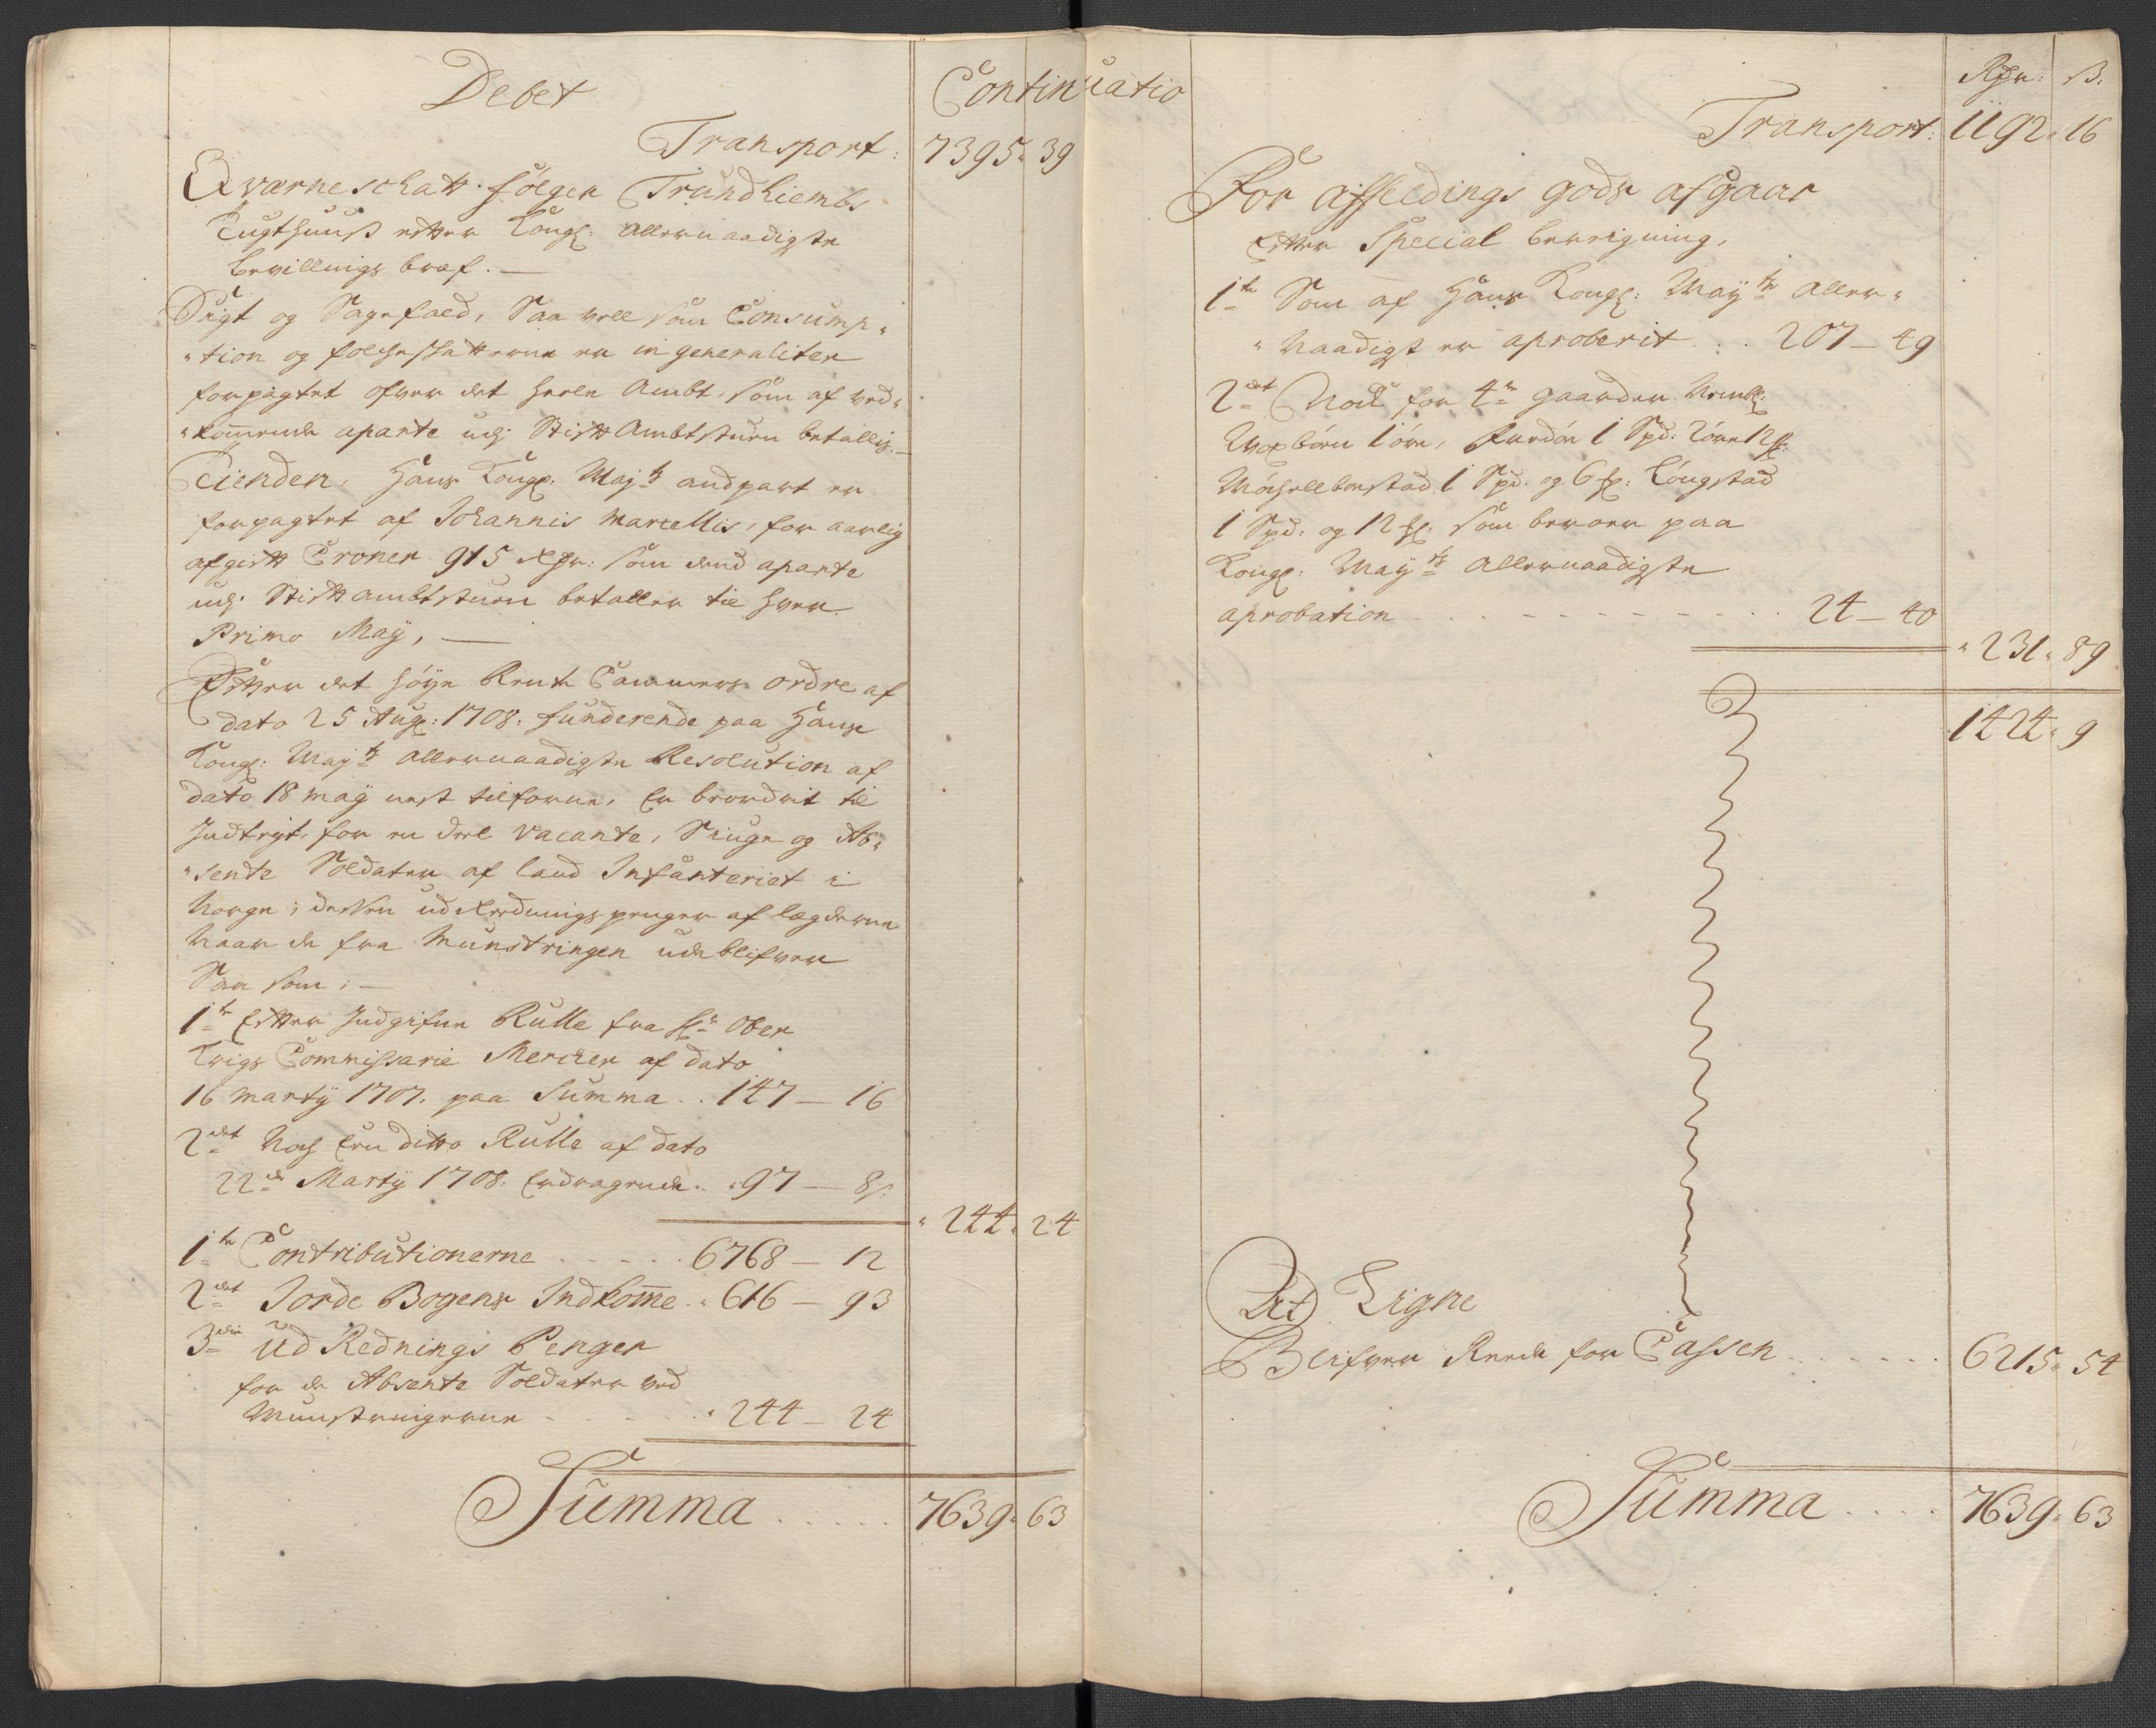 Debet
Continuatio
Transport: 7395 " 39
Qværneschatt følger Trundhiembs
Tugthuus efter Kongl: Allernaadigste
bevillings bref. —
Sigt og Sagefald, Saa vell som Consump-
-tion og folcheskatterne er in generaliter
forpagtet ofver det heele Ambt, som af ved-
-kommende aparte udj Stiftt Ambtstuen betallis. —
Tienden, Hans Kongl: Mayts andpart er
forpagtet af Johannis Marcellis, for aarlig
afgiftt Croner 915 Rdr: som derud aparte
udj Stifttambtstuen betaller til hver
Primo May, —
Efter det høye Rente Cammers ordre af
dato 25 Aug: 1708. funderende paa Hans
Kongl: Mayts Allernaadigste Resolution af
dato 18 may nest tilforne, Er beordrit til
Indtegt, for en deel vacante, Siuge og Ab-
-sente Soldater af land Infanteriet i
Norge, dessen udrednings penger af lægderne
Naar de fra Munstringen udeblifver
Saa som: —
1te Efter Indgifne Rulle fra Hr Ober
Krigs Commissarie Mercker af dato
16 marty 1707. paa Summa . . 147 — 16
2det Noch Een ditto Rulle af dato
22de Marty 1708. Erdragende . . 97 — 8 s.
" 244 " 24
1te Contributionerne . . . . . 6768 — 12
2det Jorde Bogens Indkomme . . 616 — 93
3die Ud Rednings Penger
for de Absente Soldater ved
Munstringerne . . . . . " 244 — 24
Summa . . . . . 7639 " 63
Rdr: s.
Transport: 1192 " 16
For affeldings gods afgaar
Efter Special beregning,
1te Som af Hans Kongl: Mayts Aller-
-naadigst er aproberit . . . 207 — 49
2det Nock for 4re gaarder Neml:
1 øre, 1 Spd: 1 øre 12
1 Spd: og 6
1 Spd: og 12 som beroer paa
Kongl: Mayts Allernaadigste
aprobation . . . . . . . . . 24 — 40
" 231 " 89
1424 " 9
Det Ligne
Blifver Reede for Cassen . . . . . . 6215 " 54
Summa . . . . 7639 " 63